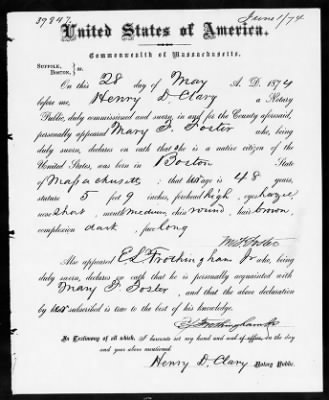 39847.
June 1/74
United States of America.
Commonwealth of Massachusetts.
SUFFOLK, BOSTON, } ss.
On this 28 day of May A. D. 1874
before me, Henry D Clary a Notary
Public, duly commissioned and sworn, in and for the County aforesaid,
personally appeared Mary F. Foster who, being
duly sworn, declares on oath that she is a native citizen of the
United States, was born in Boston State
of Massachusetts; that her age is 48 years,
stature 5 feet 9 inches, forehead high, eyes hazel,
nose short, mouth medium, chin round, hair brown,
complexion dark, face long
M. F. Foster
Also appeared E L Frothingham Jr who, being
duly sworn, declares on oath that he is personally acquainted with
Mary F Foster, and that the above declaration
by her subscribed is true to the best of his knowledge.
E L Frothingham Jr
In Testimony of which, I hereunto set my hand and seal of office, on the day
and year above mentioned.
Henry D. Clary Notary Public.